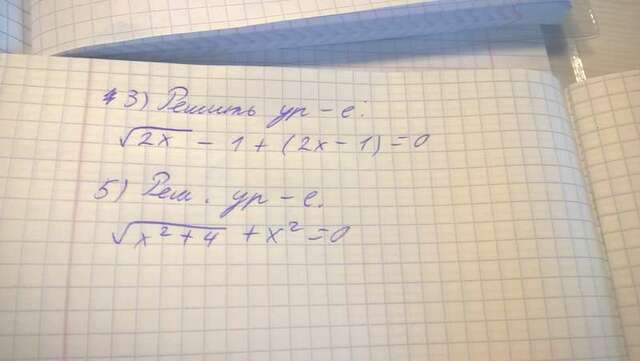 3) Решить ур-е:
√2x - 1 + (2x - 1) = 0
5) Реш. ур-е.
√x² + 4 + x² = 0